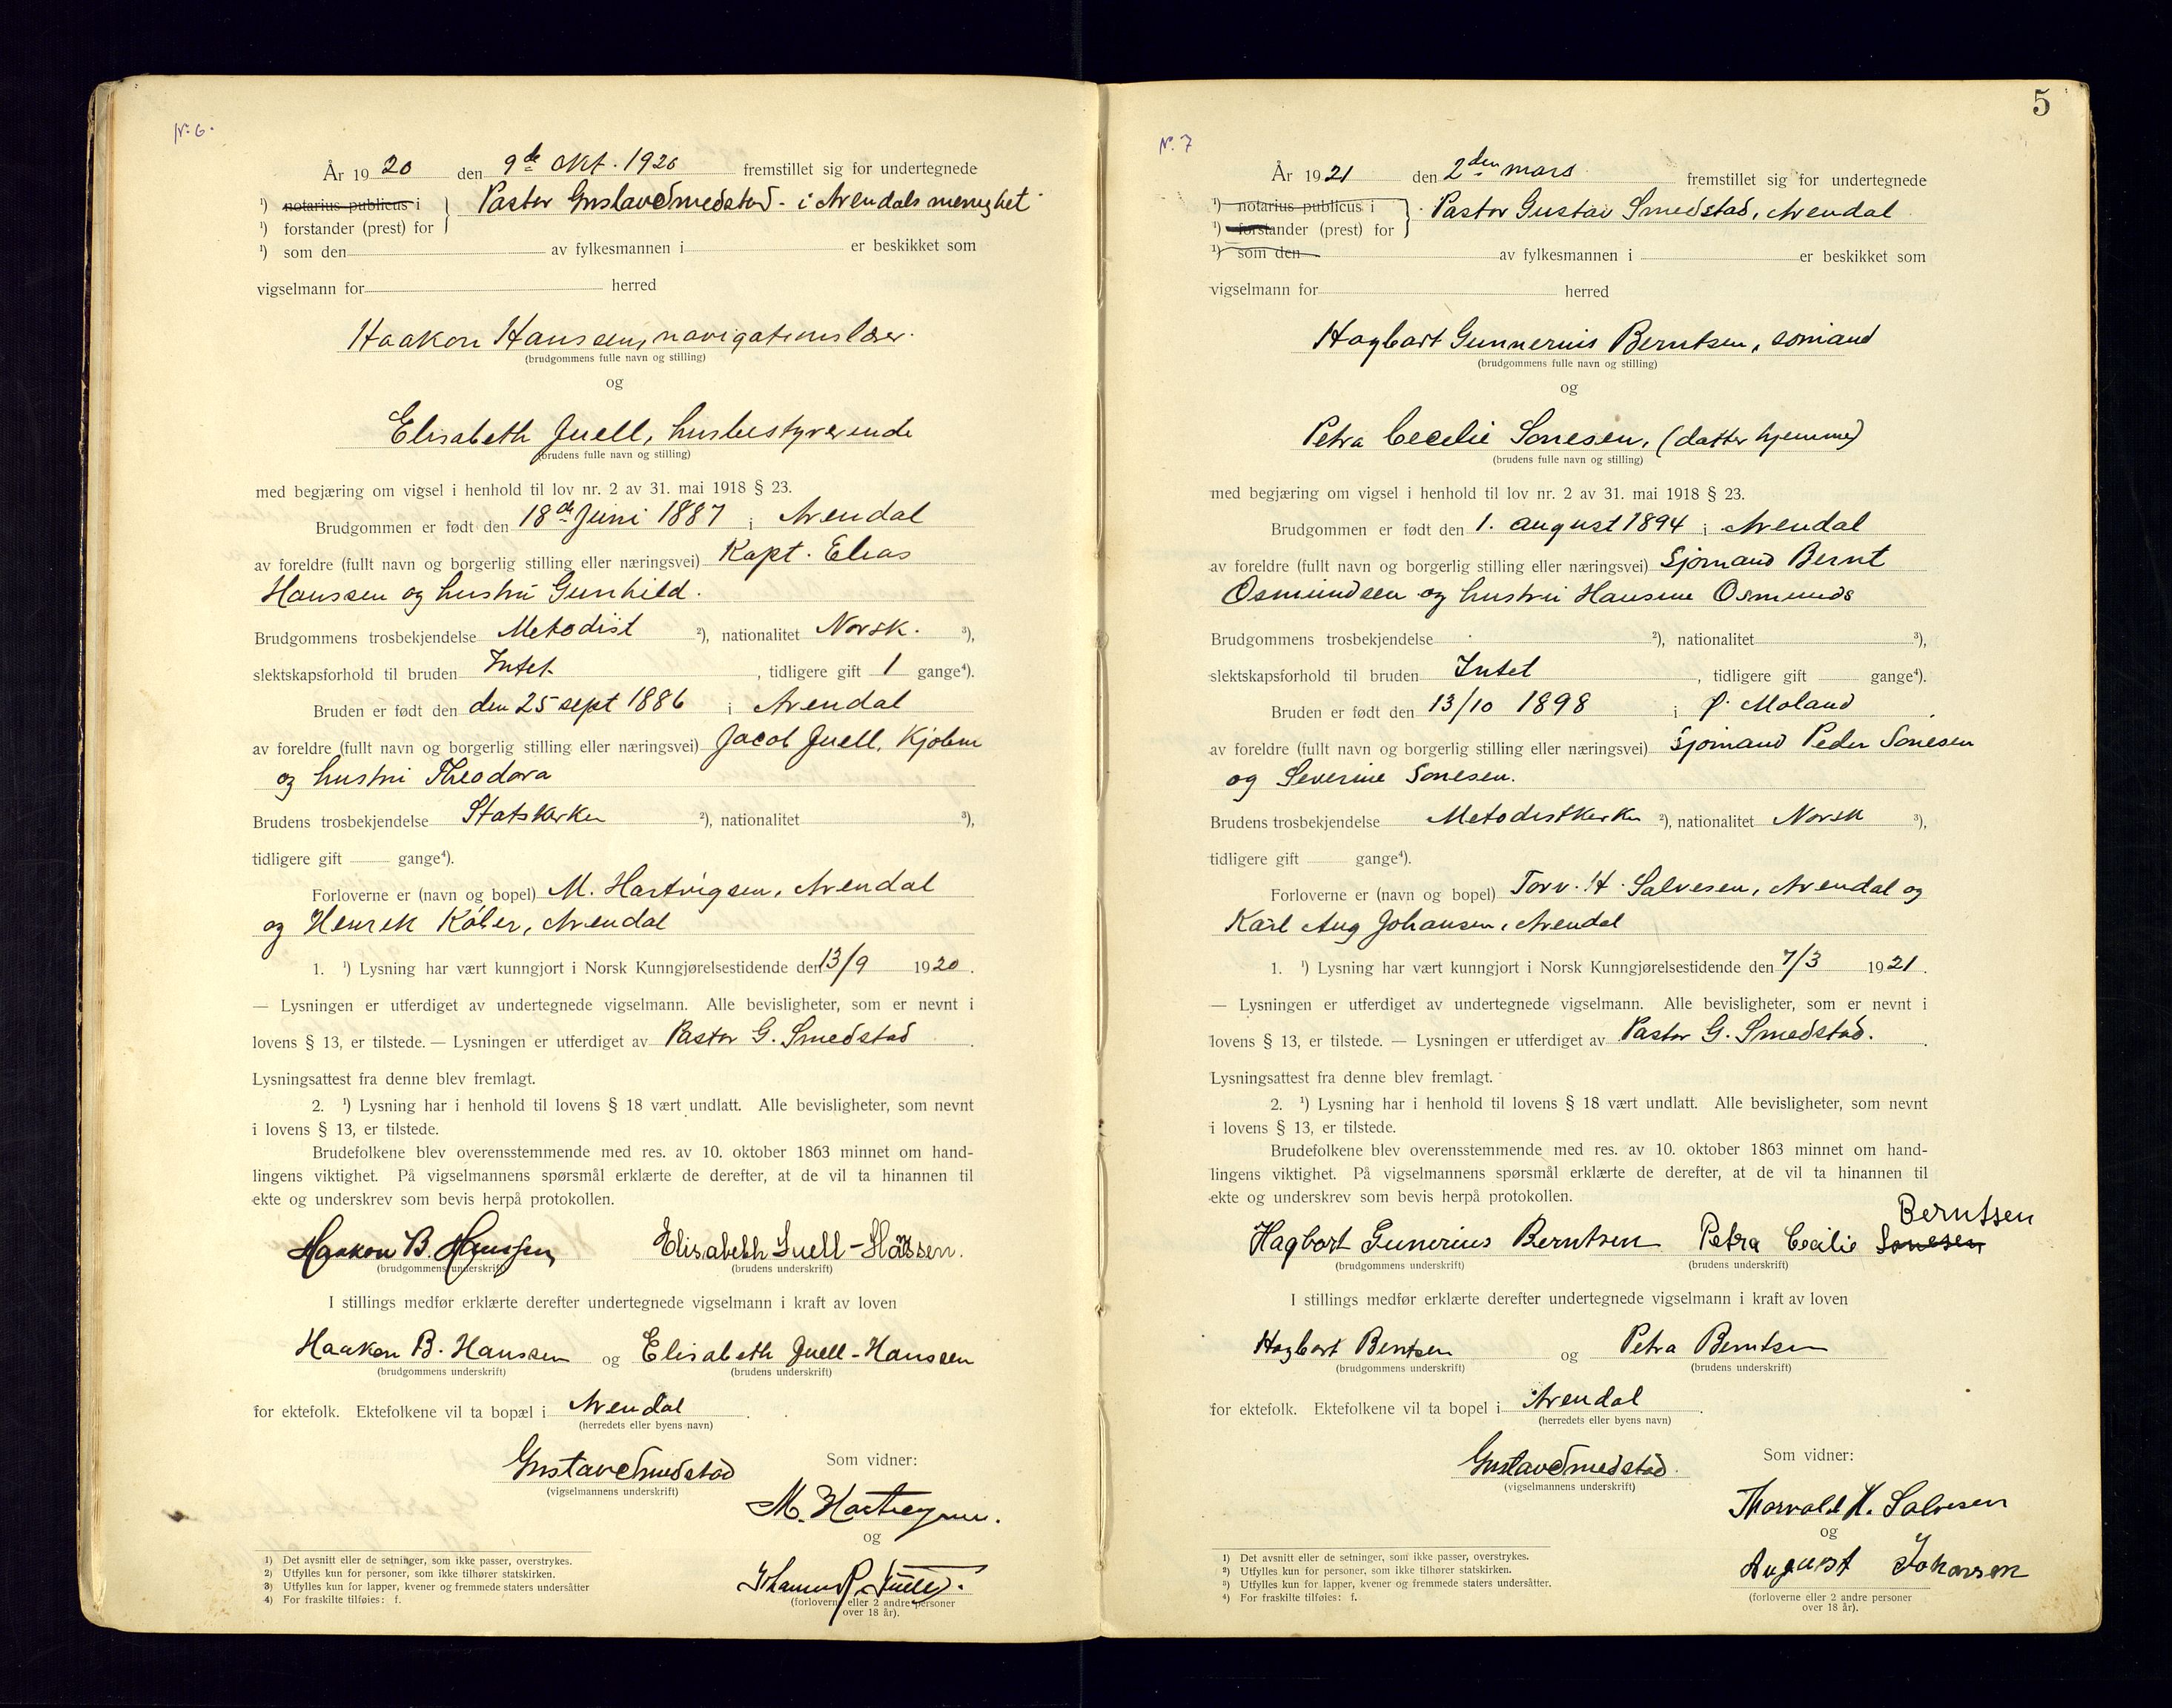 N. 6.
År 1920 den 9de Okt. 1920 fremstillet sig for undertegnede
¹) notarius publicus i
Pastor Gustav Smedstad - i Arendals menighet
¹) forstander (prest) for
¹) som den av fylkesmannen i er beskikket som
vigselmann for herred
Haakon Hanssen, navigationslærer.
(brudgommens fulle navn og stilling)
og
Elisabeth Juell, husbestyrerende
(brudens fulle navn og stilling)
med begjæring om vigsel i henhold til lov nr. 2 av 31. mai 1918 § 23.
Brudgommen er født den 18de Juni 1887 i Arendal
av foreldre (fullt navn og borgerlig stilling eller næringsvei) Kapt. Elias
Hanssen og hustru Gunhild.
Brudgommens trosbekjendelse Metodist ²), nationalitet Norsk. ³),
slektskapsforhold til bruden Intet , tidligere gift 1 gange⁴).
Bruden er født den den 25 sept 1886 i Arendal
av foreldre (fullt navn og borgerlig stilling eller næringsvei) Jacob Juell,
og hustru Theodora
Brudens trosbekjendelse Statskirken ²), nationalitet ³),
tidligere gift gange⁴).
Forloverne er (navn og bopel) M. Hartvigsen, Arendal
og Henrik Købler, Arendal
1. ¹) Lysning har vært kunngjort i Norsk Kunngjørelsestidende den 13/9 1920.
— Lysningen er utferdiget av undertegnede vigselmann. Alle bevisligheter, som er nevnt i
lovens § 13, er tilstede. — Lysningen er utferdiget av Pastor G. Smedstad.
Lysningsattest fra denne blev fremlagt.
2. ¹) Lysning har i henhold til lovens § 18 vært undlatt. Alle bevisligheter, som nevnt
i lovens § 13, er tilstede.
Brudefolkene blev overensstemmende med res. av 10. oktober 1863 minnet om hand-
lingens viktighet. På vigselmannens spørsmål erklærte de derefter, at de vil ta hinannen til
ekte og underskrev som bevis herpå protokollen.
Haakon B. Hanssen Elisabeth Juell-Hanssen.
(brudgommens underskrift) (brudens underskrift)
I stillings medfør erklærte derefter undertegnede vigselmann i kraft av loven
Haakon B. Hanssen og Elisabeth Juell-Hanssen
(brudgommens underskrift) (brudens underskrift)
for ektefolk. Ektefolkene vil ta bopæl i Arendal.
(herredets eller byens navn)
Gustav Smedstad
(vigselmannens underskrift)
Som vidner:
M. Hartvigsen.
og
Juell.
(forloverne eller 2 andre personer
over 18 år).
1) Det avsnitt eller de setninger, som ikke passer, overstrykes.
2) Utfylles kun for personer, som ikke tilhører statskirken.
3) Utfylles kun for lapper, kvener og fremmede staters undersåtter
4) For fraskilte tilføies: f.
5
N. 7
År 1921 den 2den mars fremstillet sig for undertegnede
¹) notarius publicus i
Pastor Gustav Smedstad, Arendal
¹) forstander (prest) for
¹) som den av fylkesmannen i er beskikket som
vigselmann for herred
Hagbart Gunnerius Berntsen, sømand
(brudgommens fulle navn og stilling)
og
Petra Cecelie Sonesen, (datter hjemme)
(brudens fulle navn og stilling)
med begjæring om vigsel i henhold til lov nr. 2 av 31. mai 1918 § 23.
Brudgommen er født den 1. august 1894 i Arendal
av foreldre (fullt navn og borgerlig stilling eller næringsvei) Sjømand Bernt
Osmundsen og hustru Hansine Osmunds
Brudgommens trosbekjendelse ²), nationalitet ³),
slektskapsforhold til bruden Intet , tidligere gift gange⁴).
Bruden er født den 13/10 1898 i Ø. Moland
av foreldre (fullt navn og borgerlig stilling eller næringsvei) Sjømand Peder Sonesen
og Severine Sonesen.
Brudens trosbekjendelse Metodistkirken ²), nationalitet Norsk ³),
tidligere gift gange⁴).
Forloverne er (navn og bopel) Torv. H. Salvesen, Arendal og
Karl Aug Johansen, Arendal
1. ¹) Lysning har vært kunngjort i Norsk Kunngjørelsestidende den 7/3 1921.
— Lysningen er utferdiget av undertegnede vigselmann. Alle bevisligheter, som er nevnt i
lovens § 13, er tilstede. — Lysningen er utferdiget av Pastor G. Smedstad.
Lysningsattest fra denne blev fremlagt.
2. ¹) Lysning har i henhold til lovens § 18 vært undlatt. Alle bevisligheter, som nevnt
i lovens § 13, er tilstede.
Brudefolkene blev overensstemmende med res. av 10. oktober 1863 minnet om hand-
lingens viktighet. På vigselmannens spørsmål erklærte de derefter, at de vil ta hinannen til
ekte og underskrev som bevis herpå protokollen.
Berntsen
Hagbart Gunerius Berntsen Petra Cecilie Sonesen
(brudgommens underskrift) (brudens underskrift)
I stillings medfør erklærte derefter undertegnede vigselmann i kraft av loven
Hagbart Bentsen og Petra Berntsen
(brudgommens underskrift) (brudens underskrift)
for ektefolk. Ektefolkene vil ta bopel i Arendal.
(herredets eller byens navn)
Gustav Smedstad.
(vigselmannens underskrift)
Som vidner:
Thorvald H. Salvesen
og
August Johansen
(forloverne eller 2 andre personer
over 18 år).
1) Det avsnitt eller de setninger, som ikke passer, overstrykes.
2) Utfylles kun for personer, som ikke tilhører statskirken.
3) Utfylles kun for lapper, kvener og fremmede staters undersåtter.
4) For fraskilte tilføies: f.